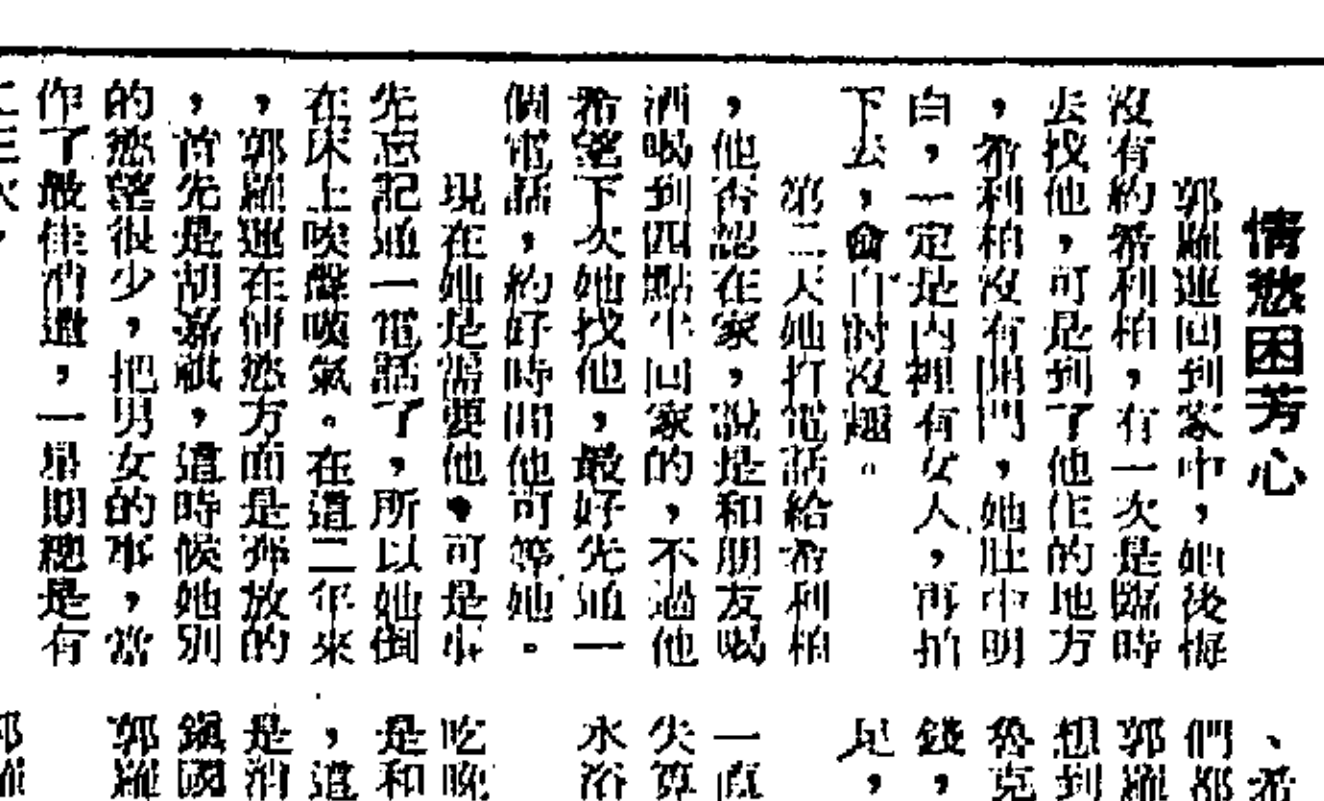 情慾困芳心
郭羅運回到家中，她後悔
沒有約希利柏，有一次是臨時
去找他，可是到了他住的地方
，希利柏沒有開門，她肚中明
白，一定是內裡有女人，再拍
下去，會自討沒趣。
第二天她打電話給希利柏
，他否認在家，說是和朋友喝
酒喝到四點半回家的，不過他
希望下次她找他，最好先通一
個電話，約好時間他可等她。
現在她是需要他，可是事
先忘記通一電話了，所以她倒
在床上唉聲嘆氣。在這二年來
，郭羅運在情慾方面是奔放的
，首先是胡嘉祺，這時候她別
的慾望很少，把男女的事，當
作了最佳消遣，一星期總是有
、希
們都
郭羅
想到
魯克
錢，
足，
一直
失算
水浴
吃晚
是和
，這
是消
鎭國
郭羅